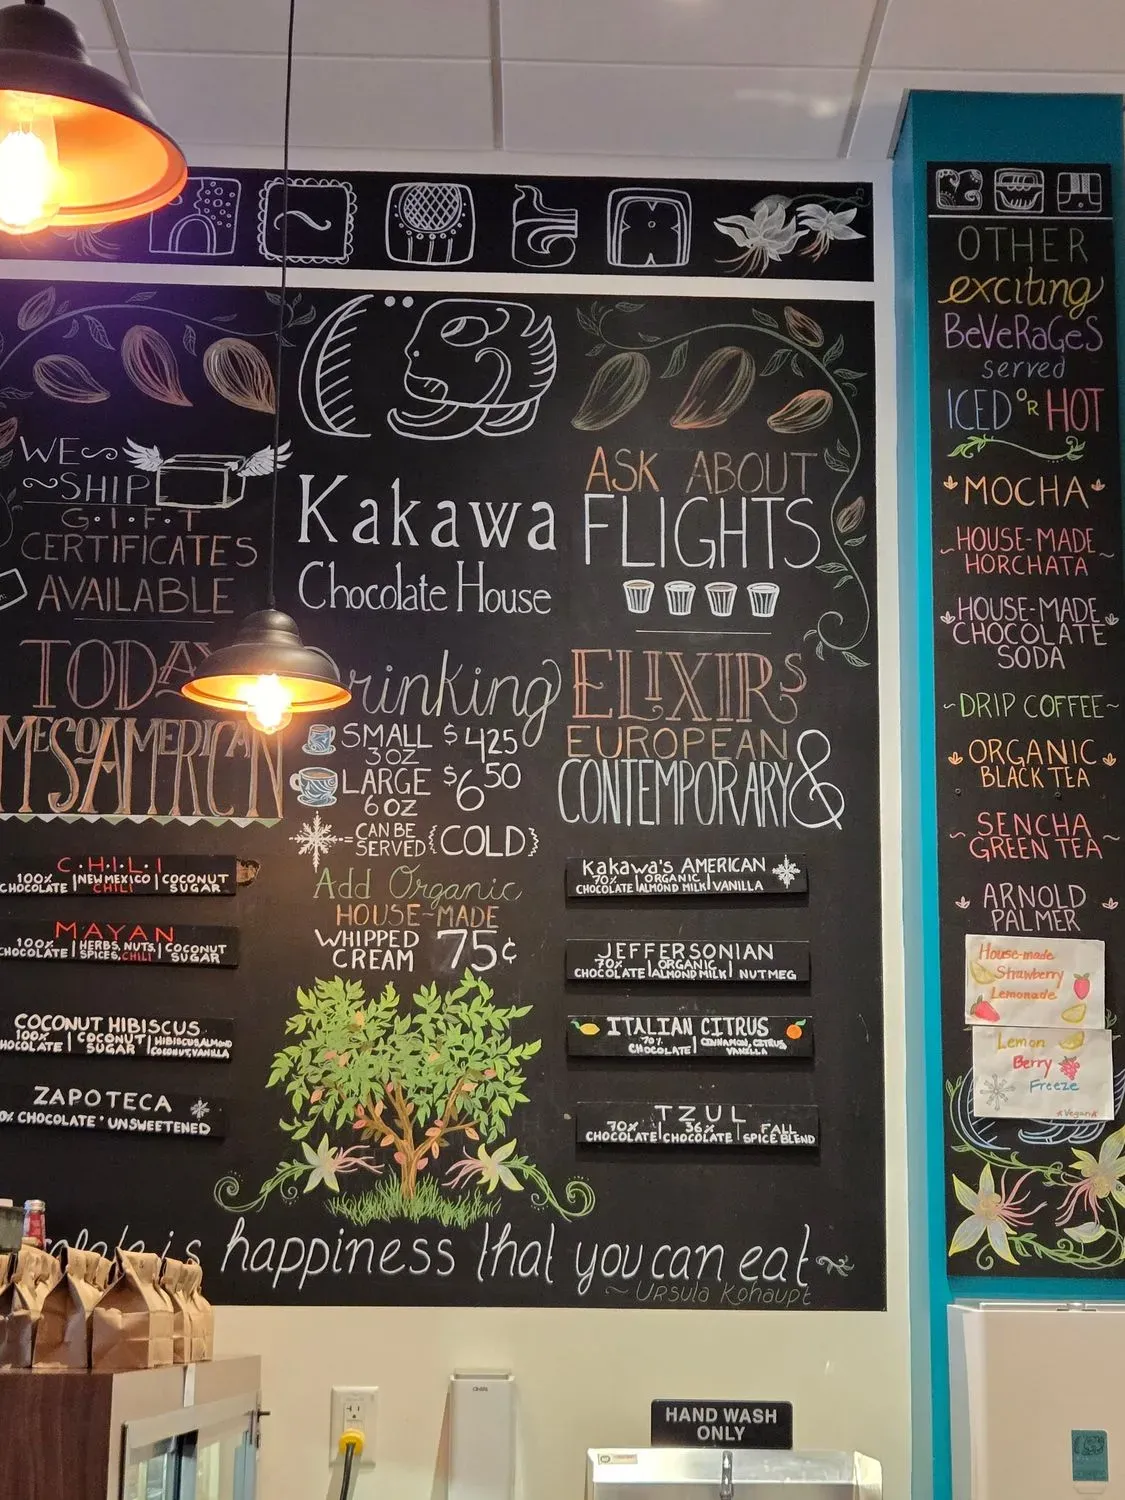 WE
SHIP
G·I·F·T
CERTIFICATES
AVAILABLE
Kakawa
Chocolate House
ASK ABOUT
FLIGHTS
TODAY
rinking
ELIXIRS
MESOAMERICAN
SMALL $4.25
3 OZ
LARGE $6.50
6 OZ
= CAN BE SERVED {COLD}
Add Organic
HOUSE-MADE
WHIPPED CREAM 75¢
EUROPEAN
CONTEMPORARY &
C·H·I·L·I
100% CHOCOLATE | NEW MEXICO CHILI | COCONUT SUGAR
MAYAN
100% CHOCOLATE | HERBS, NUTS, SPICES, CHILI | COCONUT SUGAR
COCONUT HIBISCUS
100% CHOCOLATE | COCONUT SUGAR | HIBISCUS, ALMOND COCONUT, VANILLA
ZAPOTECA
0% CHOCOLATE * UNSWEETENED
Kakawa's AMERICAN
70% CHOCOLATE | ORGANIC ALMOND MILK | VANILLA
JEFFERSONIAN
70% CHOCOLATE | ORGANIC ALMOND MILK | NUTMEG
ITALIAN CITRUS
70% CHOCOLATE | CINNAMON, CITRUS, VANILLA
TZUL
70% CHOCOLATE | 36% CHOCOLATE | FALL SPICE BLEND
is happiness that you can eat
~ Ursula Kohaupt
OTHER
exciting
BeVeRaGeS
served
ICED OR HOT
MOCHA
HOUSE-MADE
HORCHATA
HOUSE-MADE
CHOCOLATE
SODA
DRIP COFFEE
ORGANIC
BLACK TEA
SENCHA
GREEN TEA
ARNOLD
PALMER
House-made
Strawberry
Lemonade
Lemon
Berry
Freeze
*Vegan*
HAND WASH
ONLY